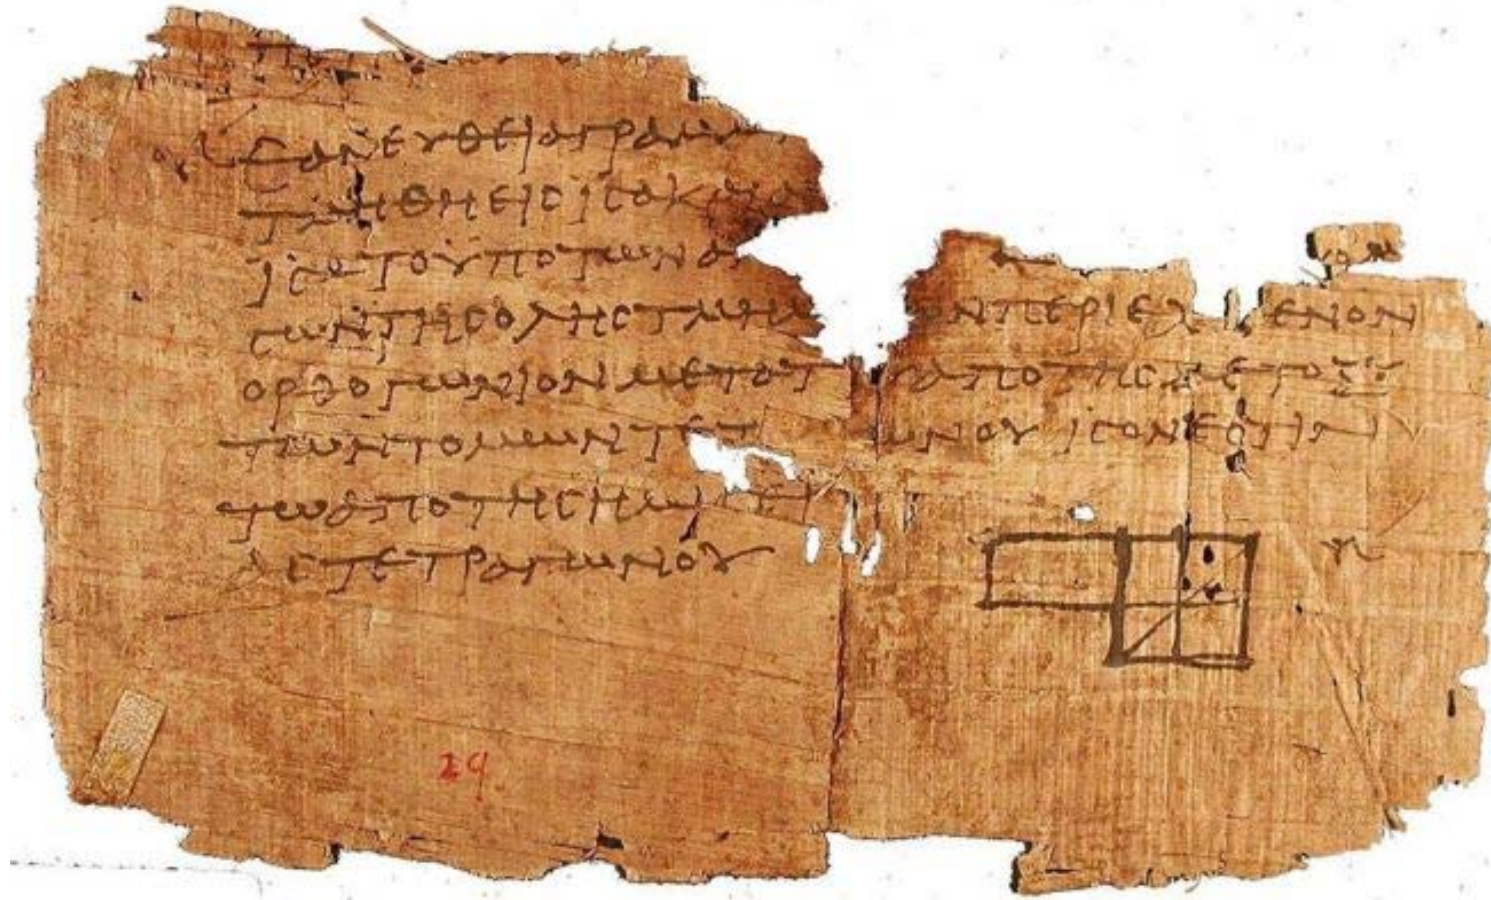 ΕΑΝ ΕΥΘΕΙΑ ΓΡΑΜΜ
ΤΜΗΘΗ ΕΙϹ ΙϹΑ ΚΑΙ Α
ΙϹΑ ΤΟ ΥΠΟ ΤΩΝ ΑΝ
ϹΩΝ ΤΗϹ ΟΛΗϹ ΤΜΗΜ ΩΝ ΠΕΡΙΕΧ ΕΝΟΝ
ΟΡΘΟΓΩΝΙΟΝ ΜΕΤΟΤ ΑΠΟ ΤΗϹ ΜΕΤΟΞΥ
ΤΩΝ ΤΟΜΩΝ ΤΕΤ ΩΝΟΥ ΙϹΟΝ ΕϹΤΙΝ
ΤΩ ΑΠΟ ΤΗϹ ΗΜΙ
ΑϹ ΤΕΤΡΑΓΩΝΟΥ
29